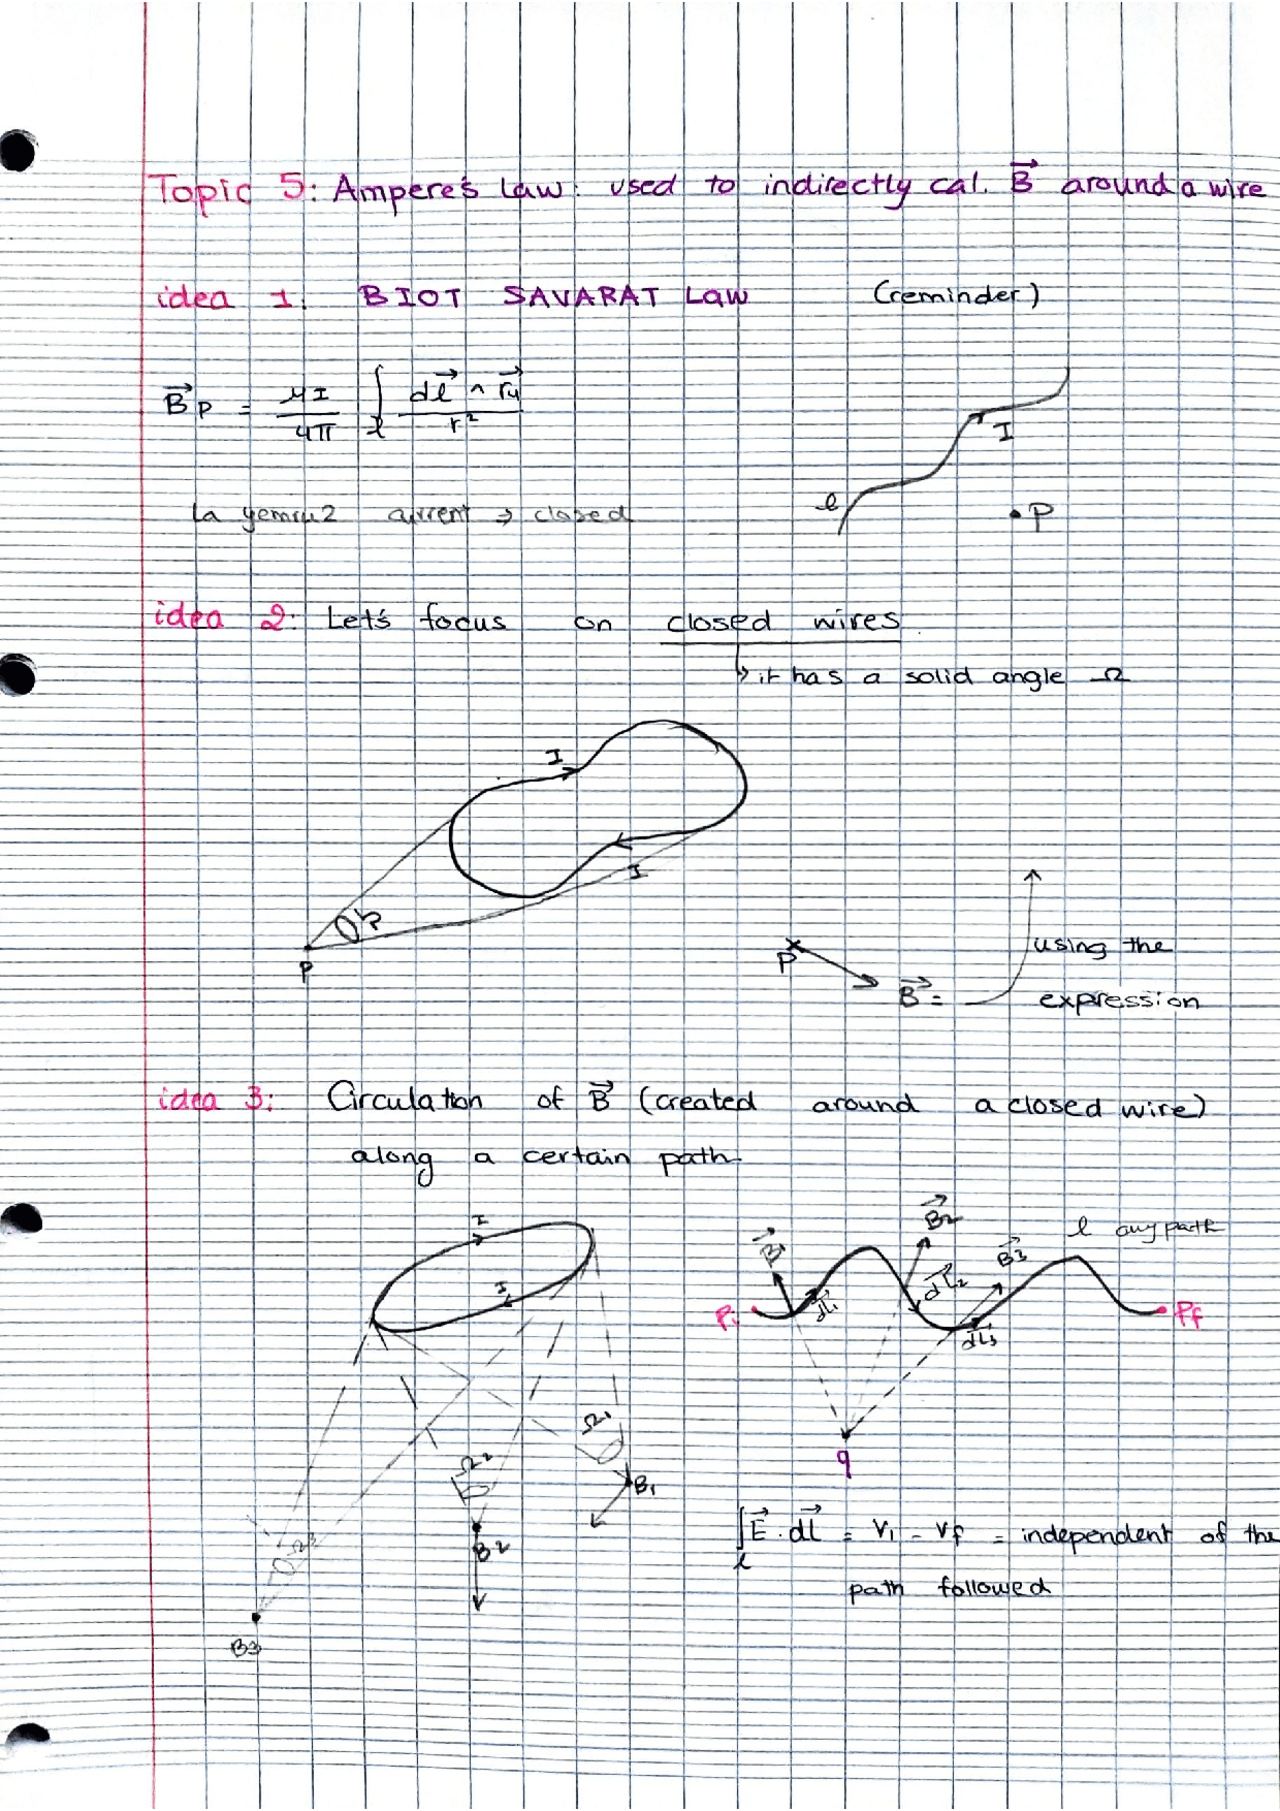 Topic 5: Ampere's Law: used to indirectly cal. B⃗ around a wire
idea 1: BIOT SAVARAT Law (reminder)
B⃗p = μI/4π ∫ℓ dℓ⃗ ^ r⃗u / r²
I
ℓ
P
la yemru2 current → closed
idea 2: Let's focus on closed wires
↳ it has a solid angle Ω
I
I
P
P
B⃗ =
using the
expression
idea 3: Circulation of B⃗ (created around a closed wire)
along a certain path
I
I
B⃗1
B⃗2
B⃗3
ℓ any path
Pi
dl⃗1
dl⃗2
dl⃗3
Pf
Ω1
Ω2
Ω3
B1
B2
B3
q
∫ℓ E⃗ . dl⃗ = Vi - Vf = independent of the
path followed